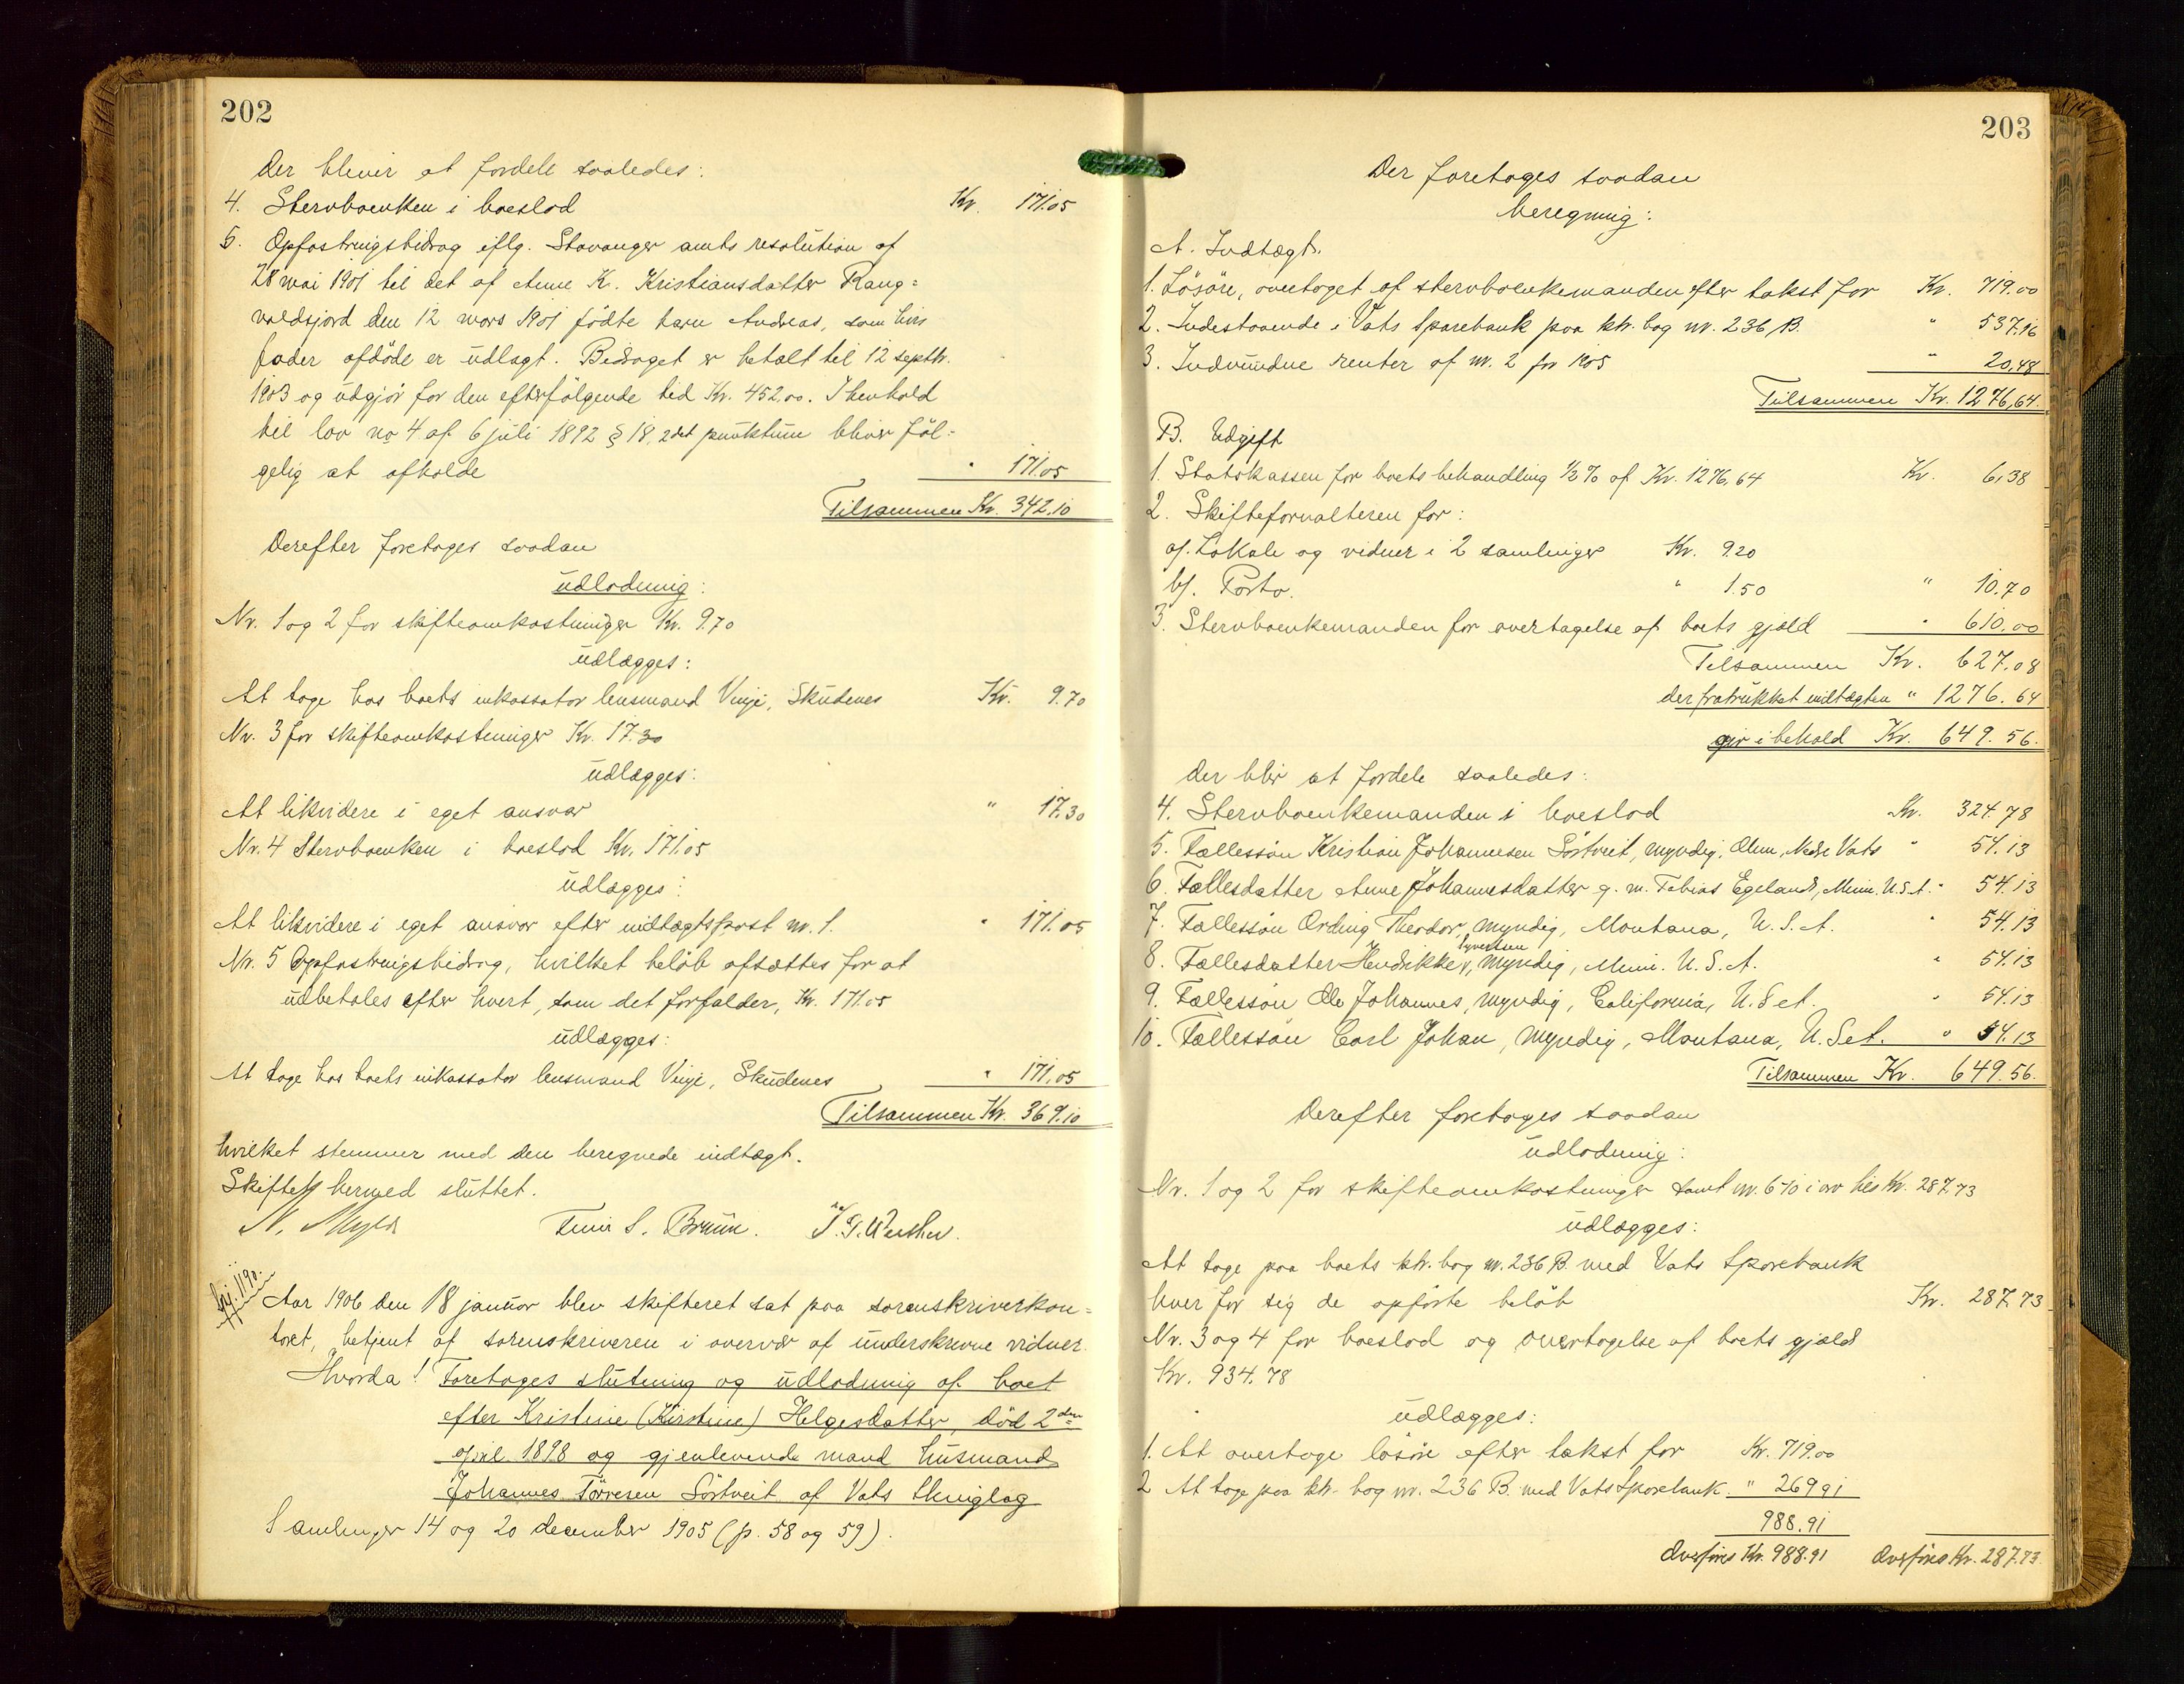 202
Der bliver at fordele saaledes:
4. Stervboenken i boeslod Kr. 171.05
5. Opfostringsbidrag iflg. Stavanger amts resolution af
28 mai 1901 til det af Anne K. Kristiansdatter Rang=
valdsjord den 12 mars 1901 födte barn Andreas, som hvis
fader afdöde er udlagt. Bidraget er betalt til 12 septbr.
1903 og udgjör for den efterfölgende tid Kr. 452.00. I henhold
til lov no 4 af 6 juli 1892 § 18, 2det punktum bliver föl=
gelig at afholde " 171.05
Tilsammen Kr. 342.10
Derefter foretages saadan
udlodning:
Nr. 1 og 2 for skifteomkostninger Kr. 9.70
udlægges:
At tage hos boets inkassator lensmand Vinje, Skudenes Kr. 9.70
Nr. 3 for skifteomkostninger Kr. 17.30
udlægges:
At likvidere i eget ansvar " 17.30
Nr. 4 Stervboenken i boeslod Kr. 171.05
udlægges:
At likvidere i eget ansvar efter indtægtspost nr. 1. " 171.05
Nr. 5 Opfostringsbidrag, hvilket belöb afsættes for at
udbetales efter hvert, som det forfalder, Kr. 171.05
udlægges:
At tage hos boets inkassator lensmand Vinje, Skudenes " 171.05
Tilsammen Kr. 369.10
hvilket stemmer med den beregnede indtægt.
Skiftet hermed sluttet.
N. Meyer S. Bruun.
1190.
Aar 1906 den 18 januar blev skifteret sat paa sorenskriverkon=
toret, betjent af sorenskriveren i overvær af underskrevne vidner.
Hvorda! Foretages slutning og udlodning af boet
efter Kristine (Kirstine) Helgesdatter, död 2den
april 1898 og gjenlevende mand husmand
Johannes Törresen Söstveit af Vats thinglag
Samlinger 14 og 20 december 1905 (p. 58 og 59).
203
Der foretages saadan
beregning:
A. Indtægt.
1. Lösöre, overtaget af stervboenkemanden efter takst for Kr. 719.00
2. Indestaaende i Vats Sparebank paa ktr. bog nr. 236 B. " 537.16
3. Indvundne renter af nr. 2 for 1905 " 20.48
Tilsammen Kr. 1276,64.
B. Udgift
1. Statskassen for boets behandling ½% af Kr. 1276.64 Kr. 6,38
2. Skifteforvalteren for:
a/. Lokale og vidner i 2 samlinger Kr. 9.20
b/. Porto. " 1.50 " 10.70
3. Stervboenkemanden for overtagelse af boets gjæld " 610.00
Tilsammen Kr. 627.08
der fratrukket indtægten " 1276.64
gir i behold Kr. 649.56.
Der blir at fordele saaledes:
4. Stervboenkemanden i boeslod Kr. 324.78
5. Fællessön Kristian Johannesen Söstveit, myndig, Nedre Vats " 54.13
6. Fællesdatter Anne Johannesdatter g. m. Tobias Egeland, Minn. U.S.A. " 54.13
7. Fællessön Ording Theodor, myndig, Montana, U.S.A. " 54.13
8. Fællesdatter Hendrikke, Syvertsen myndig, Minn. U.S.A. " 54.13
9. Fællessön Ole Johannes, myndig, California, U.S.A. " 54.13
10. Fællessön Carl Johan, myndig, Montana, U.S.A. " 54.13
Tilsammen Kr. 649.56.
Derefter foretages saadan
udlodning:
Nr. 1 og 2 for skifteomkostninger samt nr. 5-10 i arv tils. Kr. 287.73
udlægges:
At tage paa boets ktr. bog nr. 236 B. med Vats Sparebank
hver for sig de opförte belöb Kr. 287.73
Nr. 3 og 4 for boeslod og overtagelse af boets gjæld
Kr. 934.78
udlægges:
1. At overtage lösöre efter takst for Kr. 719.00
2 At tage paa ktr. bog nr. 236 B. med Vats Sparebank. " 269.91
988.91
Overföres Kr. 988.91 Overföres Kr. 287.73.